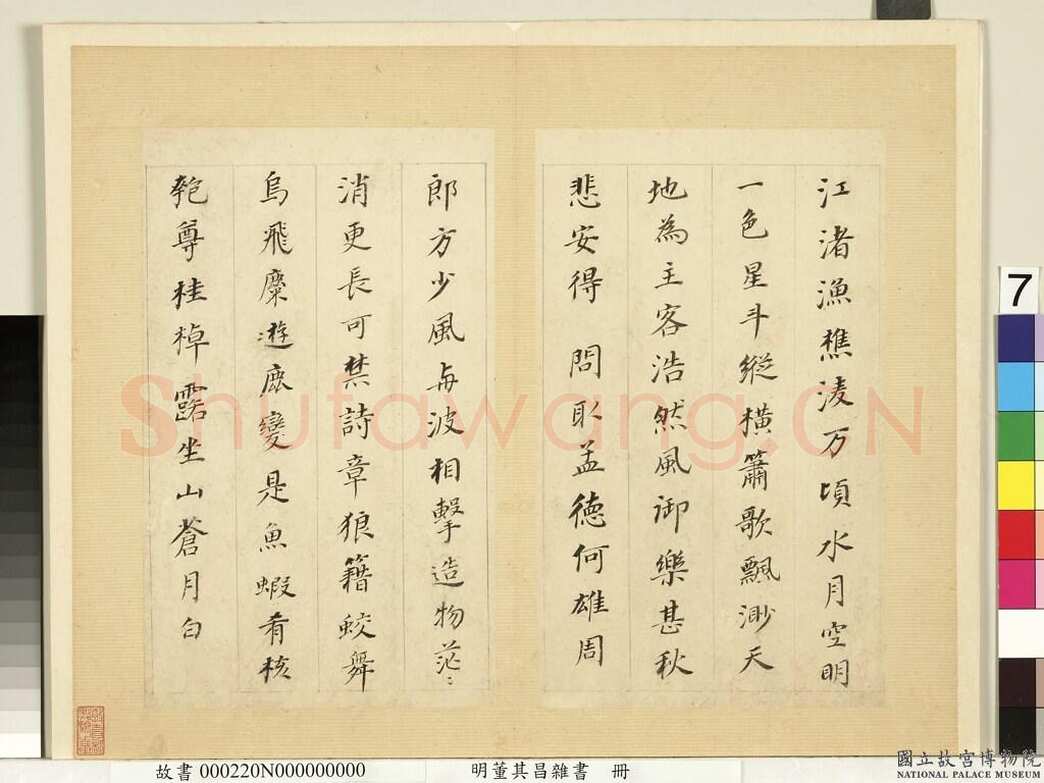 江渚漁樵淩万頃水月空明
一色星斗縱橫簫歌飄渺天
地為主客浩然風御樂甚秋
悲安得 問耴孟德何雄周
郎方少風与波相擊造物茫〻
消更長可禁詩章狼籍蛟舞
烏飛麋遊鹿變是魚蝦肴核
匏尊桂棹 露坐山蒼月白
Shufawang.CN
7
故書 000220N000000000 明董其昌雜書 冊
國立故宮博物院
NATIONAL PALACE MUSEUM